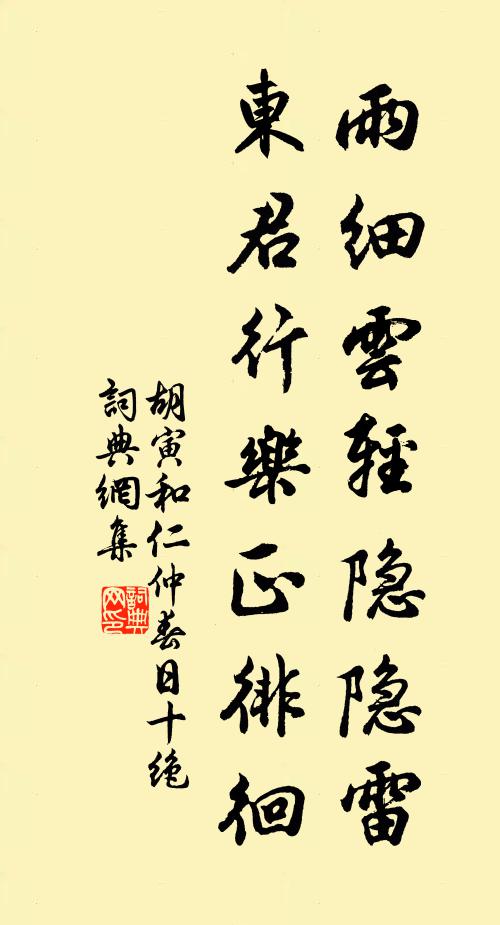 雨細雲輕隐隐雷
東君行樂正徘徊
胡寅和仁仲春日十絶
詞典網集
詞典网印